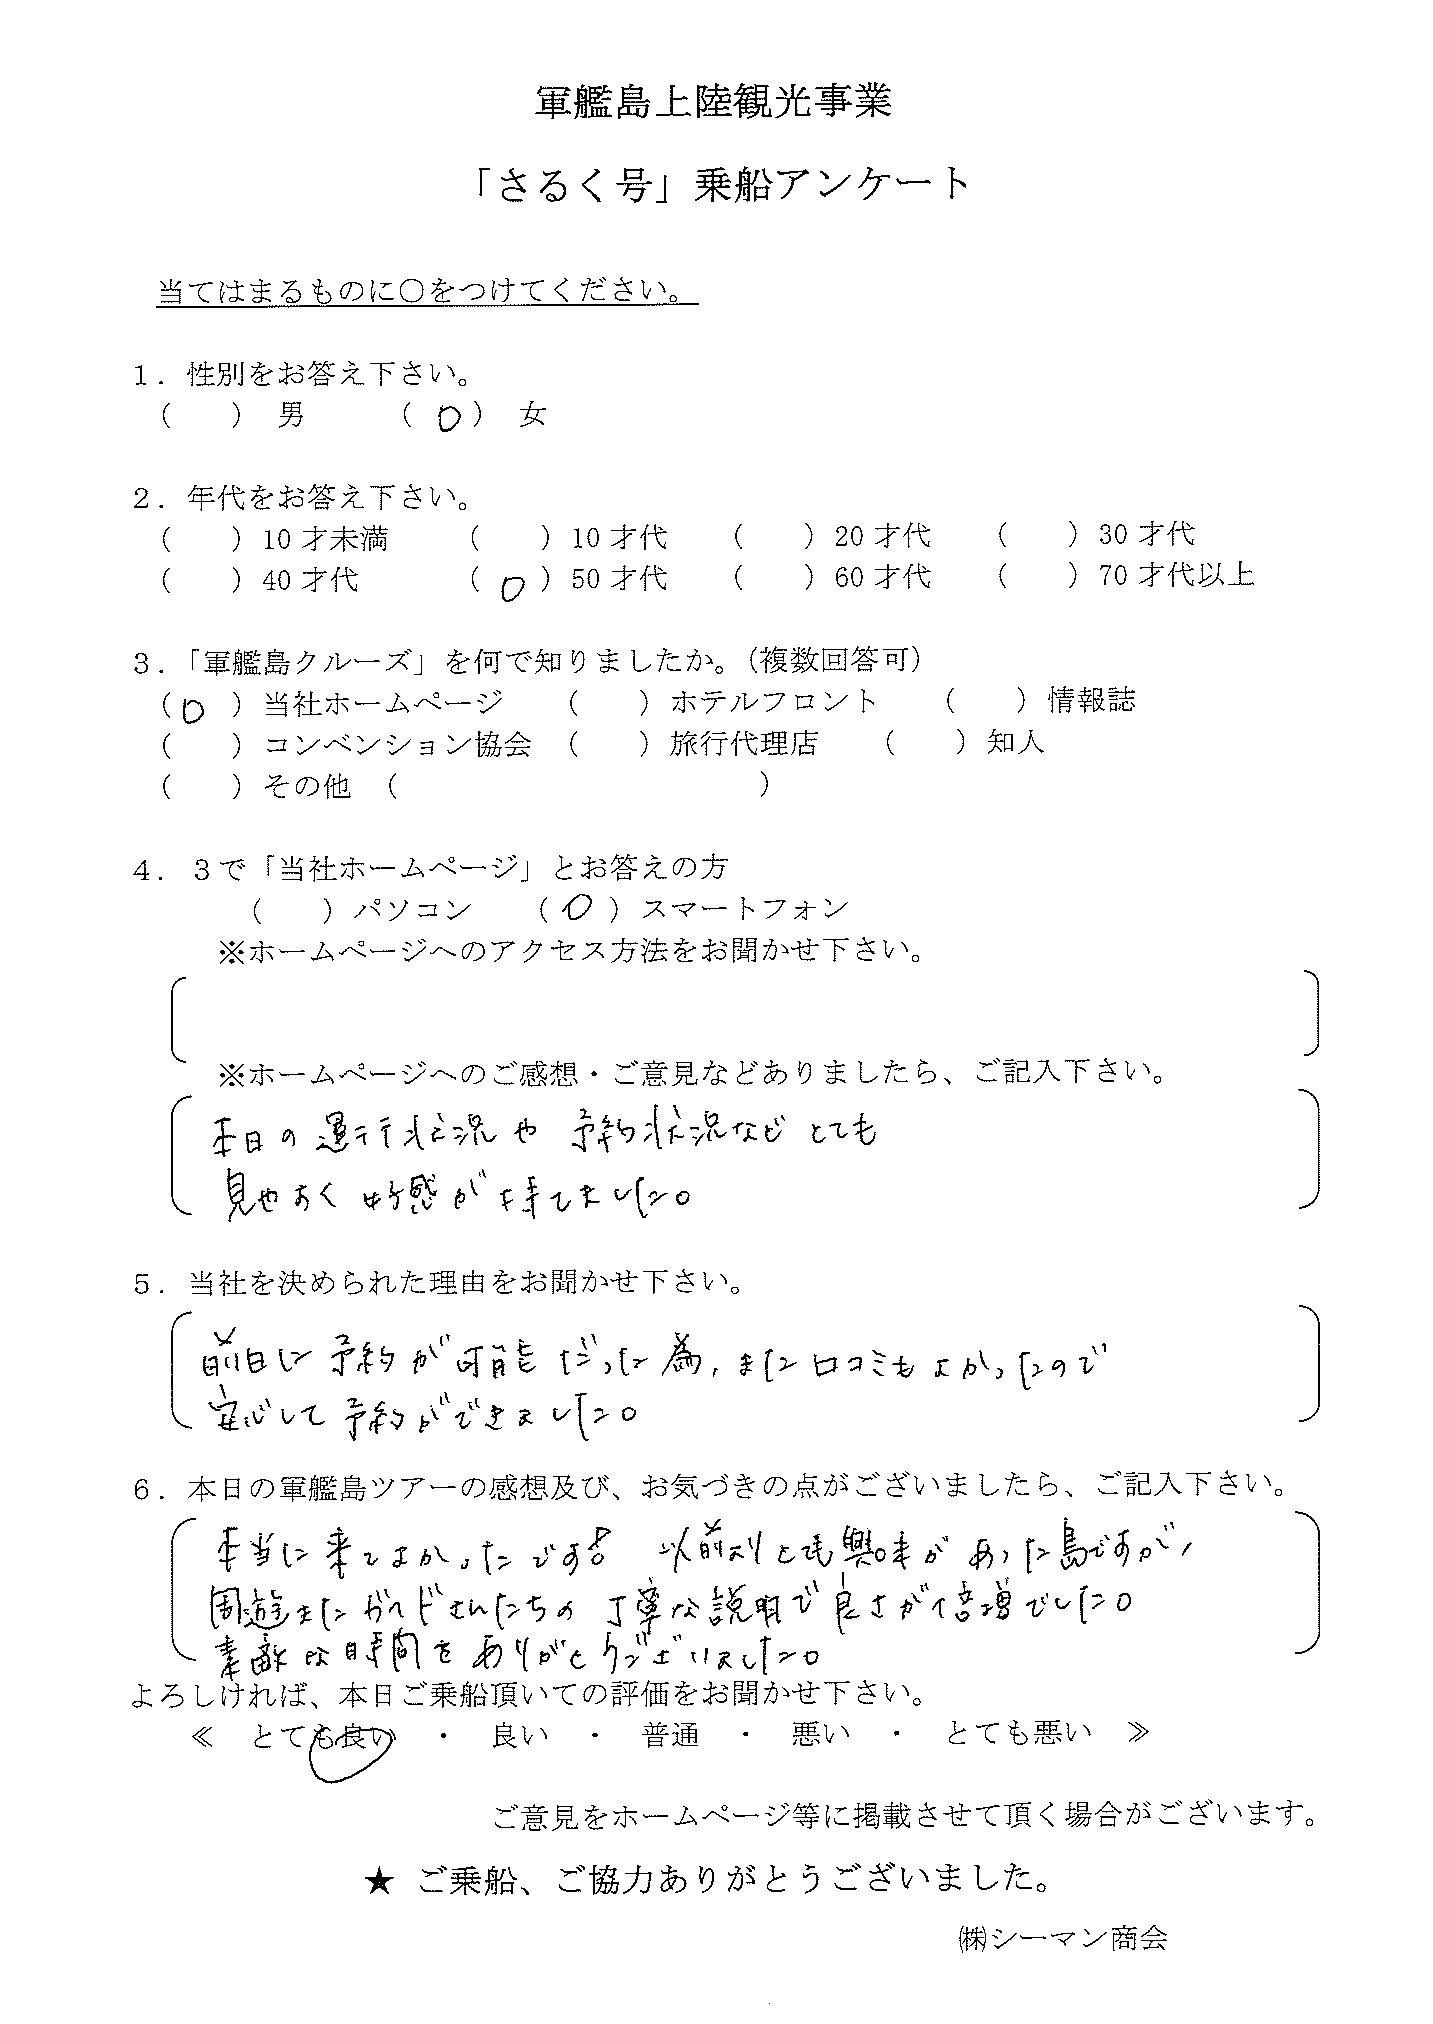 軍艦島上陸観光事業
「さるく号」乗船アンケート
当てはまるものに○をつけてください。
１．性別をお答え下さい。
（　　）　男　　　（ ○ ）　女
２．年代をお答え下さい。
（　　）10 才未満　　（　　）10 才代　　（　　）20 才代　　（　　）30 才代
（　　）40 才代　　（ ○ ）50 才代　　（　　）60 才代　　（　　）70 才代以上
３．「軍艦島クルーズ」を何で知りましたか。（複数回答可）
（ ○ ）当社ホームページ　　（　　）ホテルフロント　　（　　）情報誌
（　　）コンベンション協会　（　　）旅行代理店　　（　　）知人
（　　）その他　（　　　　　　　　　　　　）
４．３で「当社ホームページ」とお答えの方
（　　）パソコン　　（ ○ ）スマートフォン
※ホームページへのアクセス方法をお聞かせ下さい。
※ホームページへのご感想・ご意見などありましたら、ご記入下さい。
本日の運行状況や 予約状況など とても
見やすく 好感が持てました。
５．当社を決められた理由をお聞かせ下さい。
前日に予約が可能だった為、また口コミもよかったので
安心して予約ができました。
６．本日の軍艦島ツアーの感想及び、お気づきの点がございましたら、ご記入下さい。
本当に来てよかったです！ 以前よりとても興味があった島ですが、
周遊またガイドさんたちの丁寧な説明で良さが倍増でした。
素敵な時間をありがとうございました。
よろしければ、本日ご乗船頂いての評価をお聞かせ下さい。
≪　とても良い　・　良い　・　普通　・　悪い　・　とても悪い　≫
ご意見をホームページ等に掲載させて頂く場合がございます。
★ ご乗船、ご協力ありがとうございました。
㈱シーマン商会